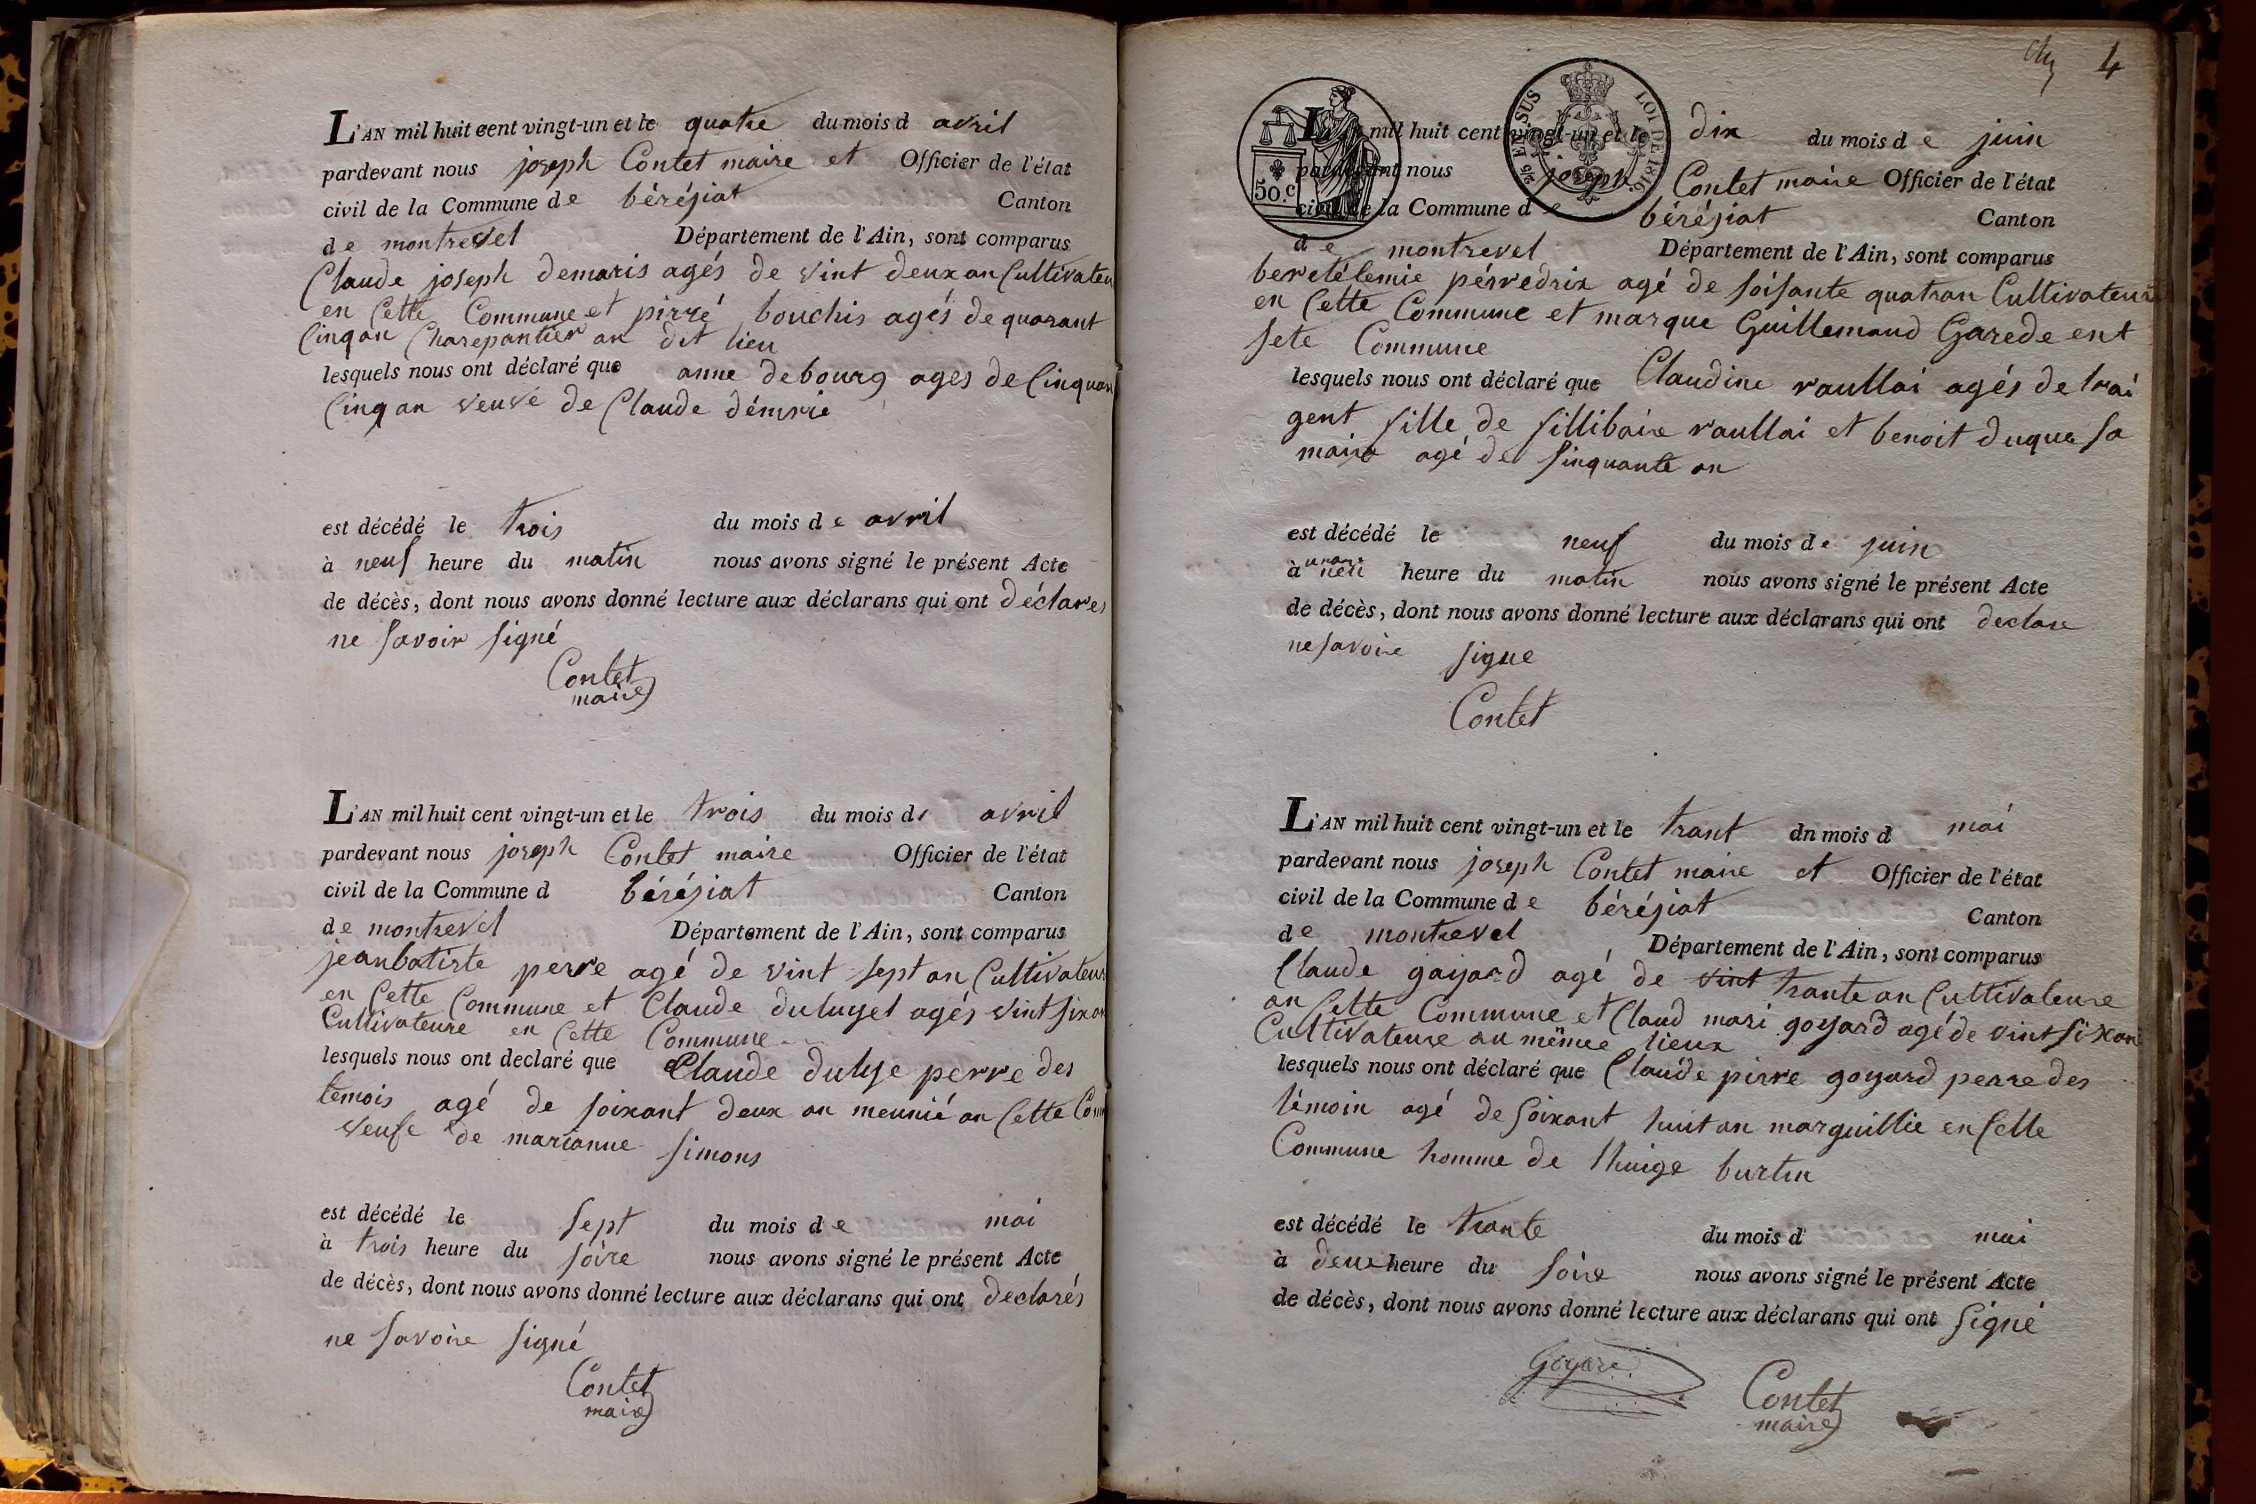 L'AN mil huit cent vingt-un et le quatre du mois d avril
pardevant nous joseph Contet maire et Officier de l'état
civil de la Commune de béréziat Canton
de montrevel Département de l'Ain, sont comparus
Claude joseph demaris agés de vint deux an Cultivateu
en Cette Commune et pirré bouchis agés de quarant
Cinq an Charepantier au dit lieu
lesquels nous ont déclaré que anne debourg ages de Cinquan
Cinq an veuve de Claude démrie
est décédé le trois du mois de avril
à neuf heure du matin nous avons signé le présent Acte
de décès, dont nous avons donné lecture aux déclarans qui ont déclares
ne savoir signé
Contet
maire
L'AN mil huit cent vingt-un et le trois du mois de avril
pardevant nous joseph Contet maire Officier de l'état
civil de la Commune d béréziat Canton
de montrevel Département de l'Ain, sont comparus
jeanbatiste perre agé de vint sept an Cultivateur
en Cette Commune et Claude duluyel agés vint six an
Cultivateure en Cette Commune
lesquels nous ont declaré que Claude duluye perre des
temois agé de soixant deux an meunié an Cette Com
veufe de marianne simons
est décédé le sept du mois de mai
à trois heure du soire nous avons signé le présent Acte
de décès, dont nous avons donné lecture aux déclarans qui ont declarés
ne savoire signé
Contet
maire
4
50.c
25 EN SUS LOI DE 1816
L'AN mil huit cent vingt-un et le dix du mois de juin
pardevant nous joseph Contet maire Officier de l'état
civil de la Commune de béréziat Canton
de montrevel Département de l'Ain, sont comparus
beretélemie pérredrix agé de soisante quatran Cultivateure
en Cette Commune et marque Guillemaud Garede ent
sete Commune
lesquels nous ont déclaré que Claudine raullai agés de trai
gent fille de fillibaire raullai et benoit duque sa
maire agé de sinquante an
est décédé le neuf du mois de juin
à heure du matin nous avons signé le présent Acte
de décès, dont nous avons donné lecture aux déclarans qui ont declare
ne savoire signe
Contet
L'AN mil huit cent vingt-un et le trant dn mois d mai
pardevant nous joseph Contet maire et Officier de l'état
civil de la Commune de béréziat Canton
de montrevel Département de l'Ain, sont comparus
Claude goyard agé de vint trante an Cultivateure
an Cette Commune et Claud mari goyard agé de vint six an
Cultivateure au mêmee lieux
lesquels nous ont déclaré que Claude pirre goyard perre des
témoin agé de soixant huit an marguillie en Cette
Commune homme de thuige burtin
est décédé le trante du mois d mai
à deux heure du soire nous avons signé le présent Acte
de décès, dont nous avons donné lecture aux déclarans qui ont signé
Goyard
Contet
maire